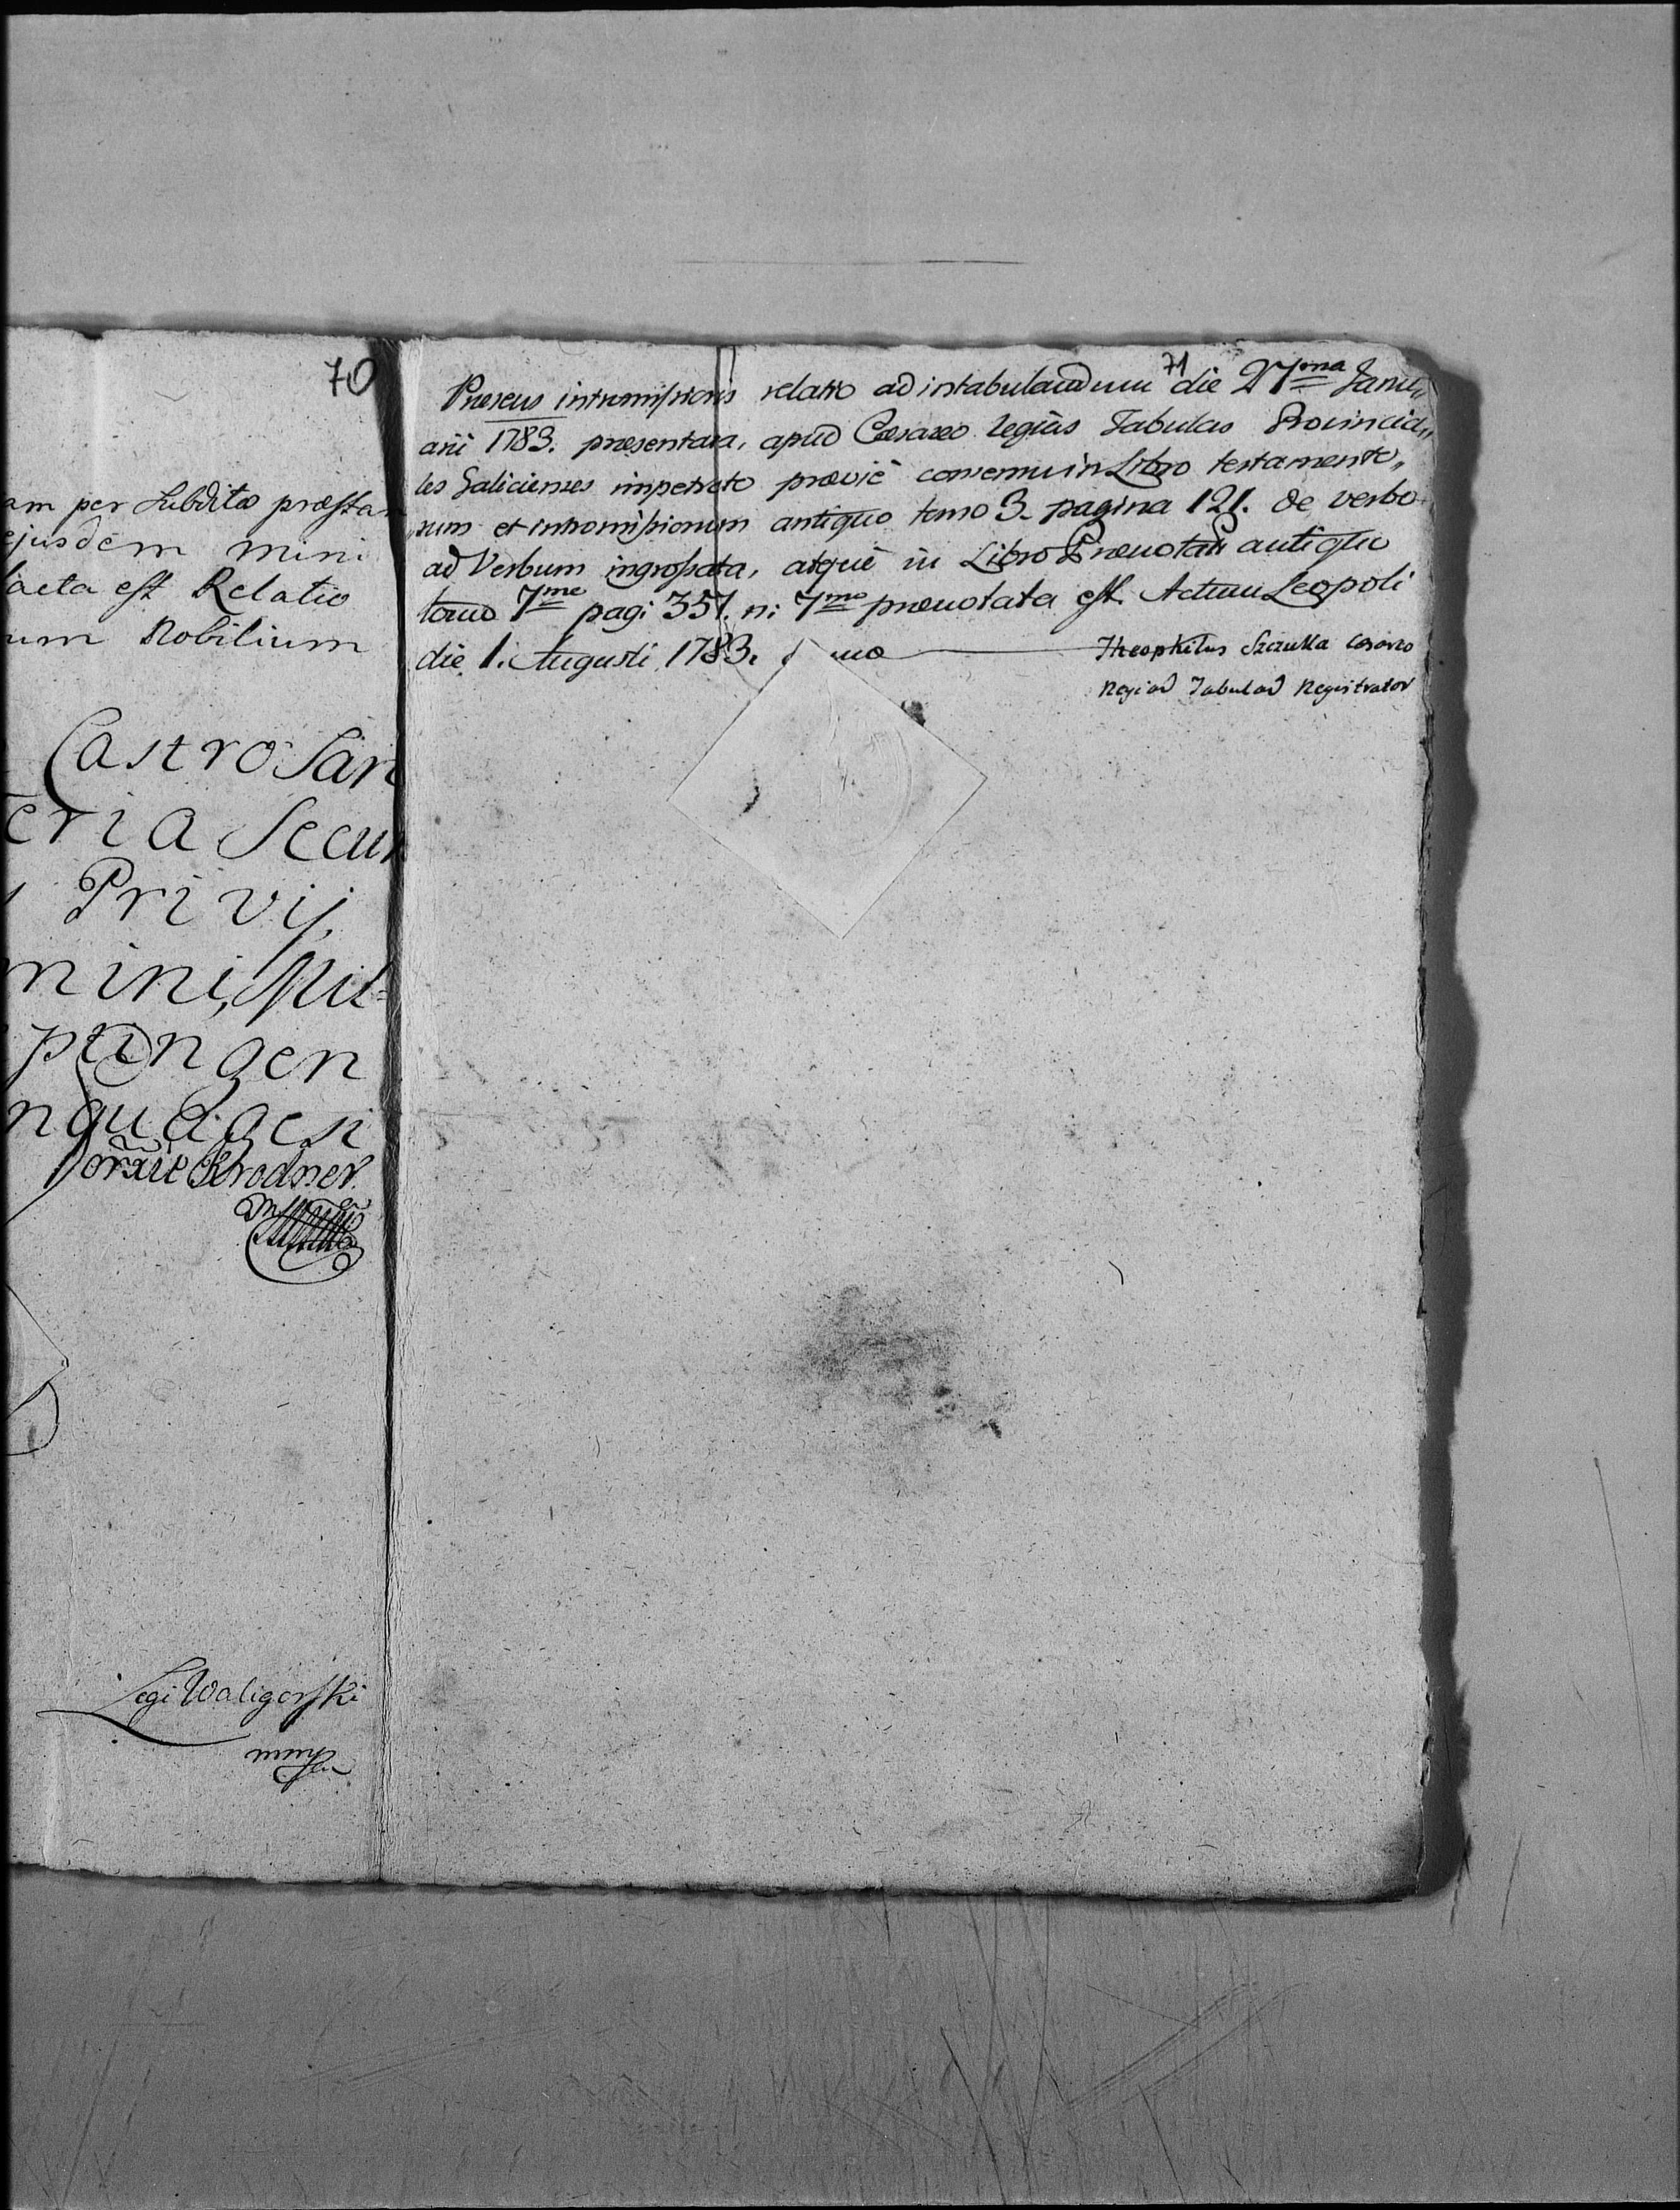 70
am per Subditos præsta
ejusdem mini
facta est Relatio
um Nobilium
Castro San
eria Secun
Privij
mini, Mil=
ptingen
nquagesi
Legi Waligorski
mmp
71
Præsens intromissionis relatio ad intabulandum die 27ma Janu„
arii 1783. præsentata, apud Cæsareo regias Tabulas Provincia„
les Galicienses impetrato prævie consensu in Libro testamento„
rum et intromissionum antiquo tomo 3. pagina 121. de verbo
ad Verbum ingrossata, atque in Libro Prænotati antiquo
tomo 7mo pag: 357. n: 7mo prænotata est. Actum Leopoli
die 1. Augusti 1783.
Theophilus Szczutka Cæsareo
Regiar Tabular Registrator